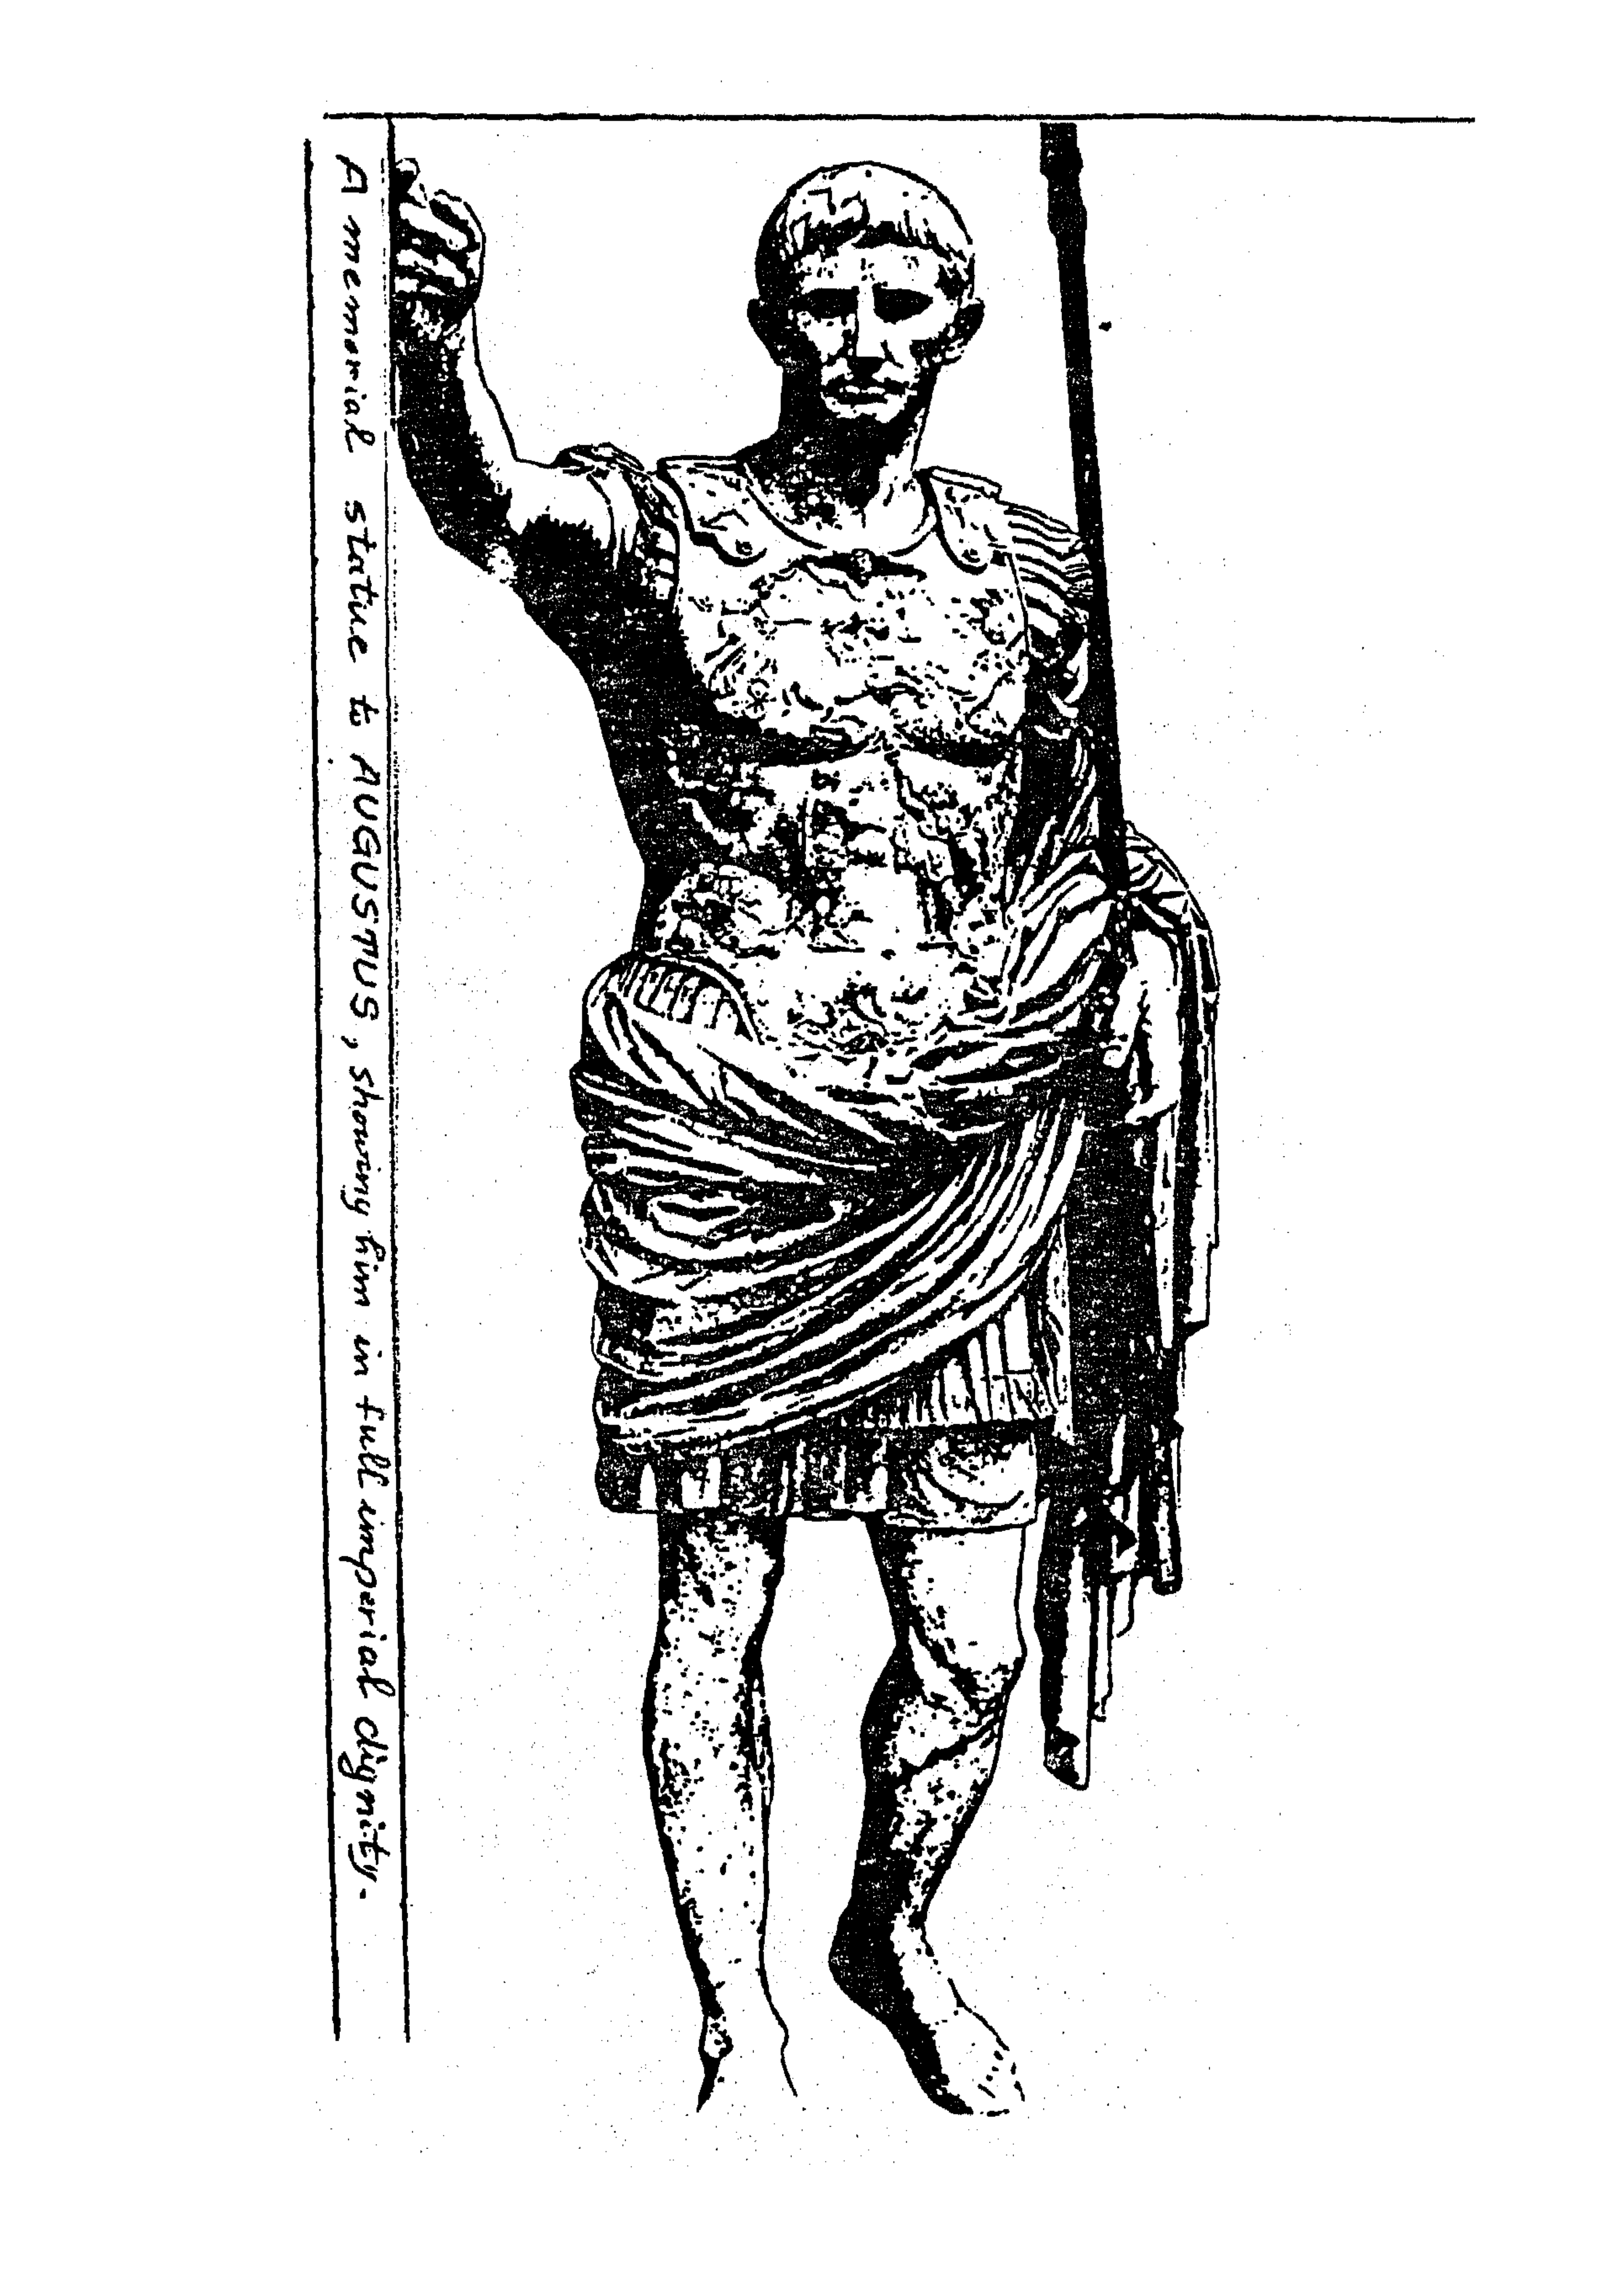 A memorial statue to AUGUSTUS, showing him in full imperial dignity.